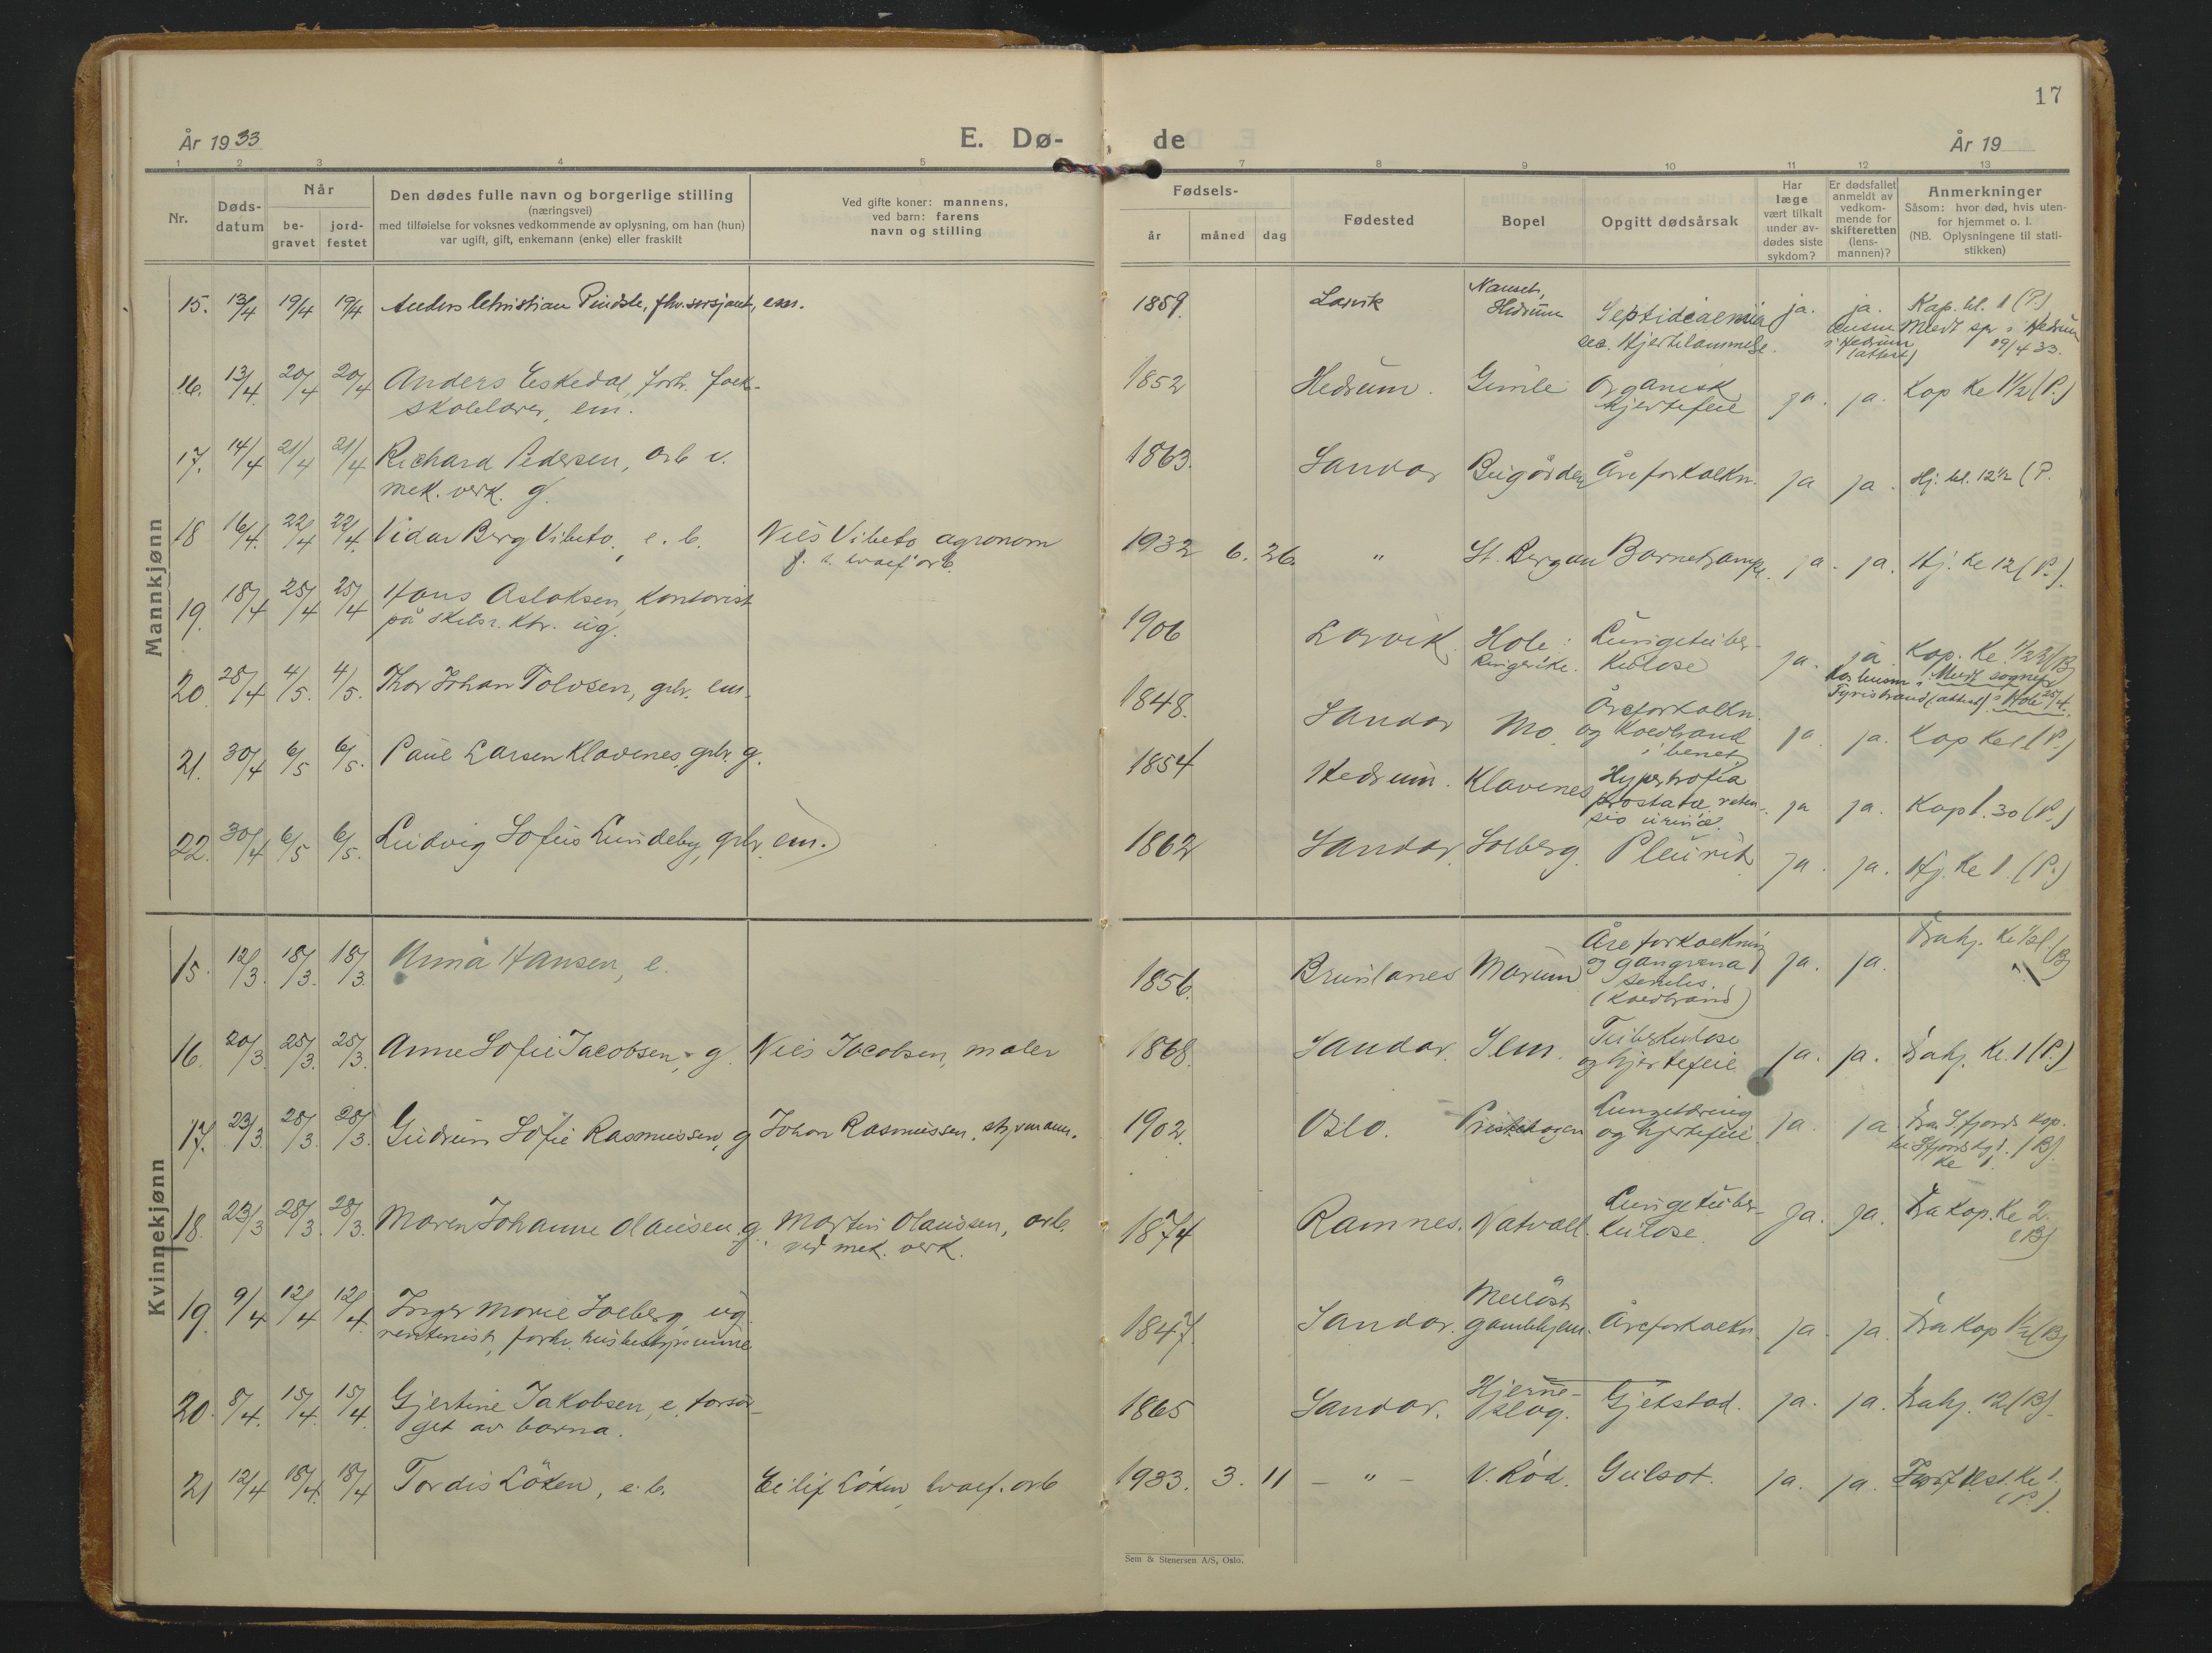 17
År 1933
E. Dø-
de
År 19
1 2 3 4 5 7 8 9 10 11 12 13
Nr.
Døds-
datum
Når
be-
gravet
jord-
festet
Den dødes fulle navn og borgerlige stilling
(næringsvei)
med tilføielse for voksnes vedkommende av oplysning, om han (hun)
var ugift, gift, enkemann (enke) eller fraskilt
Ved gifte koner: mannens,
ved barn: farens
navn og stilling
Fødsels-
år måned dag
Fødested
Bopel
Opgitt dødsårsak
Har
læge
vært tilkalt
under av-
dødes siste
sykdom?
Er dødsfallet
anmeldt av
vedkom-
mende for
skifteretten
(lens-
mannen)?
Anmerkninger
Såsom: hvor død, hvis uten-
for hjemmet o. l.
(NB. Oplysningene til stati-
stikken)
Mannkjønn
15. 13/4 19/4 19/4 Anders Christian Pindsle, fhv. sersjant, em. 1859. Larvik
Hedrum Septicaemia ja. ja. Kap. kl. 1 (P.)
sec. Hjertelammelse. i Hedrum 19/4 33.
(attest)
16. 13/4 20/4 20/4 Anders Eskedal, forh. folk-
skolelærer, em. 1852 Hedrum. Gimle Organisk
hjertefeil ja. ja. Kap Kl 1 1/2 (P.)
17. 14/4 21/4 21/4 Richard Pedersen, arb v.
mek. verk. g. 1863. Sandar Bugården Åreforkalkn. ja ja. Hj. kl. 12 1/2 (P.
18 16/4. 22/4 22/4. Vidar Berg Vibeto, e. b. Nils Vibeto agronom
1932 6. 26. " St. Bergan Barnekrampe. ja. ja. Hj. Kl 12 (P.).
19. 18/4 25/4 25/4 Hans Aslaksen, kontorist
på ktr. ug. 1906 Larvik. Hole:
Ringerike. Lungetuber-
kulose ja. ja Kap. Kl.
Tyristrand (attest) i Hole 25/4.
20 28/4 4/5. 4/5. Thor Johan Tolvsen, grbr. em. 1848. Sandar Mo Åreforkalkn.
og koldbrand
i benet ja. ja. Kap Kl 1 (P.)
21. 30/4 6/5 6/5. Paul Larsen Klavenes, grbr. g. 1854 Hedrum. Klavenes Hypertrofia
prostata, reten-
sio urinæ. ja ja. Kap 1.30 (P.)
22. 30/4 6/5 6/5. Ludvig Sofus Lundeby, grbr. em. 1862 Sandar. Solberg. Pleurit ja. ja. Hj. Kl 1. (P.)
Kvinnekjønn
15. 12/3. 18/3. 18/3. Anna Hansen, e. 1856. Brunlanes Marum Åreforkalkning
og gangrena
senilis.
(koldbrand) ja. ja.
16. 20/3. 25/3. 25/3. Anne Sofie Jacobsen, g. Nils Jacobsen, maler 1868. Sandar. Sem. Tuberkulose
og hjertefeil ja. ja. Frahj. Kl. 1 (P.)
17. 23/3. 28/3. 28/3. Gudrun Sofie Rasmussen, g Johan Rasmussen, styrmann. 1902. Oslo. Prestehagen
og hjertefeil ja. ja Fra Sfjords kap.
18. 23/3 28/3. 28/3. Maren Johanne Olausen. g. Martin Olaussen, arb.
ved mek. verk. 1874 Ramnes. Natvall. Lungetuber-
kulose. Ja. Ja. Fra Kap. Kl 2.
(B)
19. 9/4 12/4 12/4. Inger Marie Solberg, ug.
rentenist, forh. husbestyrerinne 1847. Sandar.
gamlehjem. Åreforkalkn. ja. ja. Fra Kap 1/2 (B)
20. 8/4. 15/4. 15/4. Gjertine Jakobsen, e. forsør-
get av barna. 1865 Sandar. Hjerne-
slag. Gjekstad. ja. ja. Frahj. 12 (B).
21 12/4 18/4. 18/4 Tordis Löken, e. b. Eilif Löken, hvalf. arb 1933. 3. 11 - " - V. Röd. Gulsot. ja. ja.
(P.).
Sem & Stenersen A/S, Oslo.